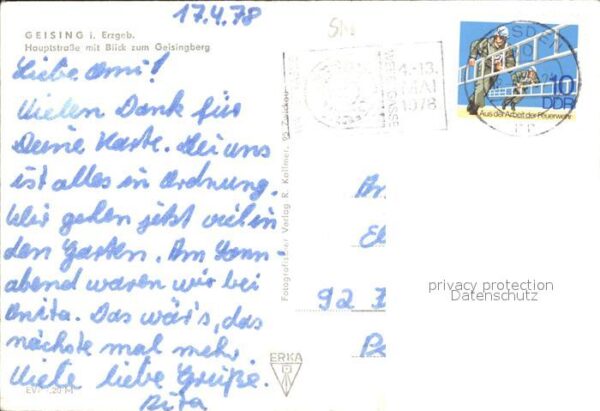 17.4.78
GEISING i. Erzgeb.
Hauptstraße mit Blick zum Geisingberg
Liebe Omi!
Vielen Dank für
Deine Karte. Bei uns
ist alles in Ordnung.
Wir gehen jetzt viel in
den Garten. Am Sonn-
abend waren wir bei
Anita. Das wär's, das
nächste mal mehr
Viele liebe Grüße.
Rita
Fotografischer Verlag R. Kallmer, 95 Zwickau
ERKA
4.-13.
MAI
1978
10
DDR
Aus der Arbeit der Feuerwehr
92
privacy protection
Datenschutz